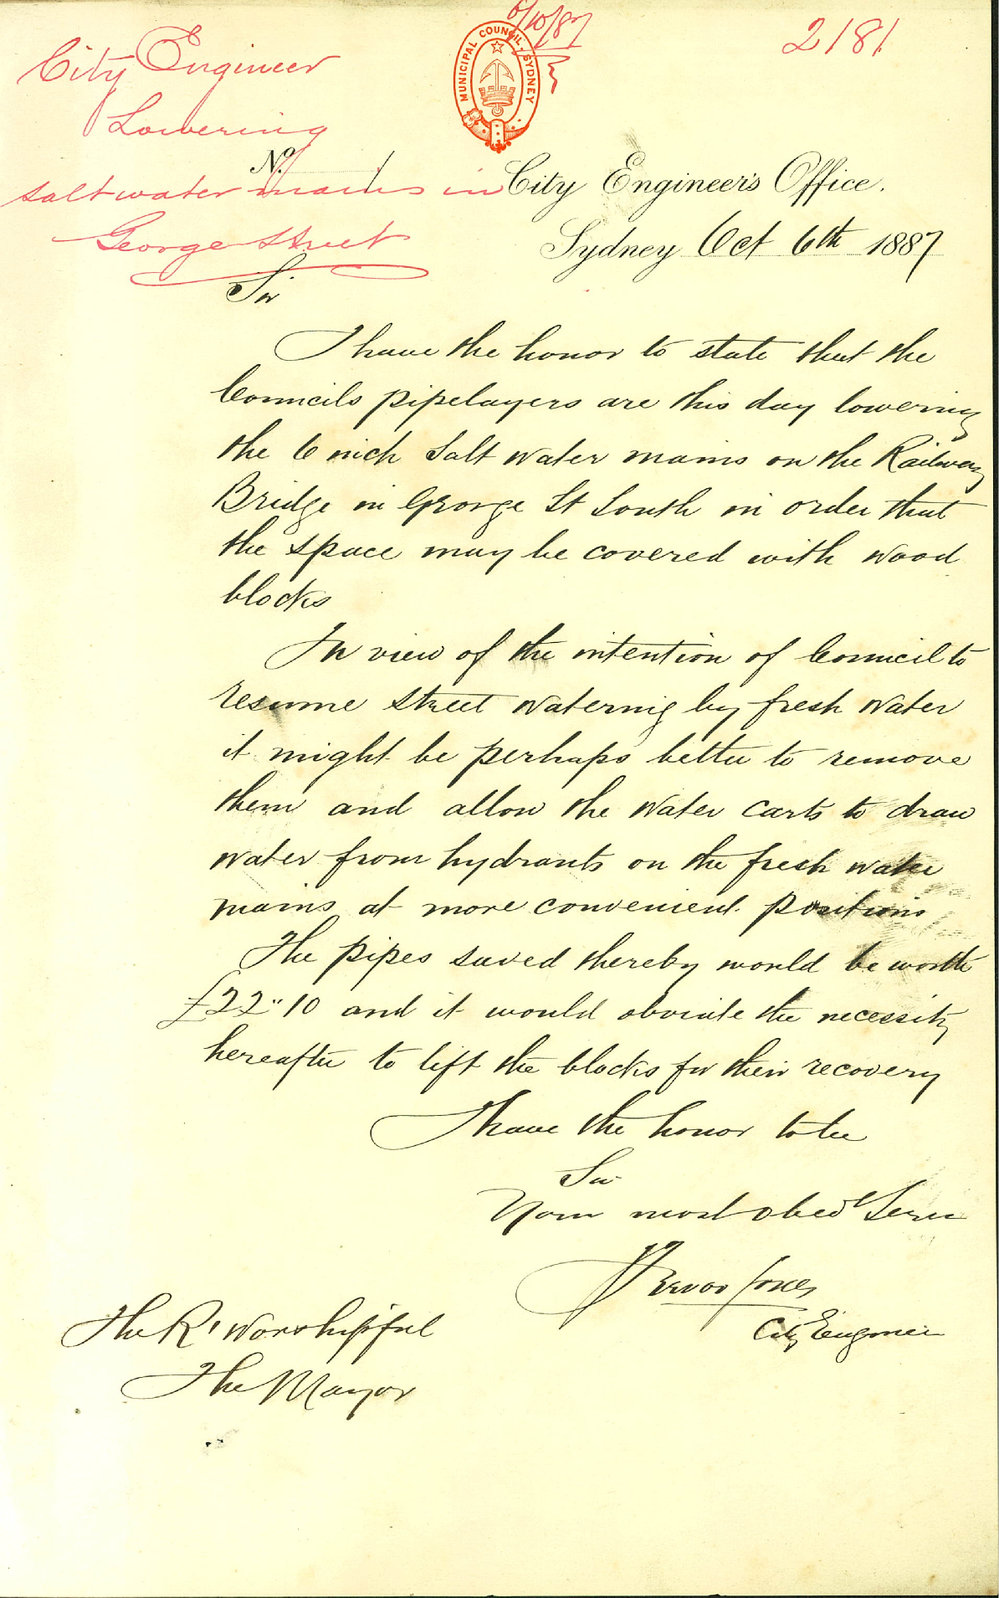 6/10/87
2181
MUNICIPAL COUNCIL SYDNEY
City Engineer
Lowering
salt water mains in
George Street
No.
City Engineer's Office.
Sydney Oct 6th 1887
Sir
I have the honor to state that the
Councils pipelayers are this day lowering
the 6 inch Salt water mains on the Railway
Bridge in George St South in order that
the space may be covered with wood
blocks
In view of the intention of Council to
resume street watering by fresh water
it might be perhaps better to remove
them and allow the water carts to draw
water from hydrants on the fresh water
mains at more convenient positions
The pipes saved thereby would be worth
£22"10 and it would obviate the necessity
hereafter to lift the blocks for their recovery
I have the honor to be
Sir
Your most obedt Serv
Trevor Jones
City Engineer
The Rt Worshipful
The Mayor